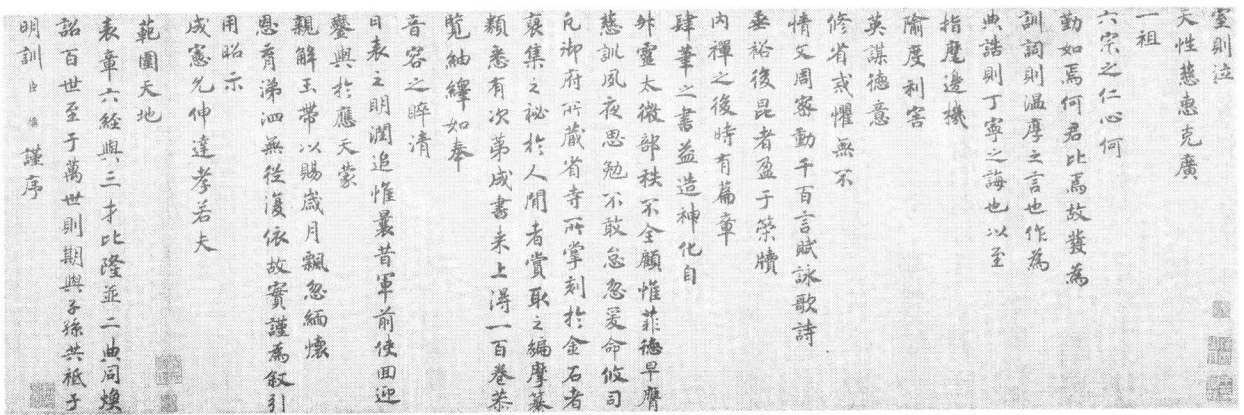 室則泣
天性慈惠克廣
一祖
六宗之仁心何
勤如焉何君比焉故發為
訓詞則溫厚之言也作為
典誥則丁寧之誨也以至
指麾邊機
隃度利害
英謀德意
修省戒懼無不
情文周密動千百言賦詠歌詩
垂裕後昆者盈于縑牘
內禪之後時有篇章
肆筆之書益造神化自
外靈太微部秩不全顧惟菲德早膺
慈訓夙夜思勉不敢怠忽爰命攸司
凡御府所藏省寺所掌刻於金石者
裒集之秘於人間者賞取之編摩纂
類悉有次第成書來上得一百卷恭
覽紬繹如奉
音容之睟清
日表之明潤追惟曩昔軍前使回迎
鑾輿於應天蒙
親解玉帶以賜歲月飄忽緬懷
恩育涕泗無從復依故實謹為敘引
用昭示
成憲允伸達孝若夫
範圍天地
表章六經與三才比隆並二典同煥
詔百世至于萬世則期與子孫共祗于
明訓臣 謹序